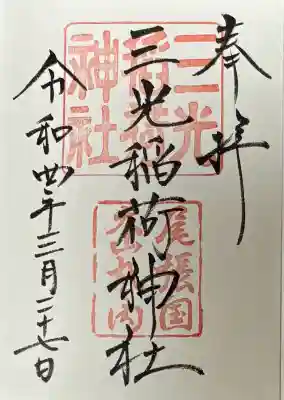 奉拝
三光稲荷神社
令和四年三月二十七日
三光
稲荷
神社
尾張国